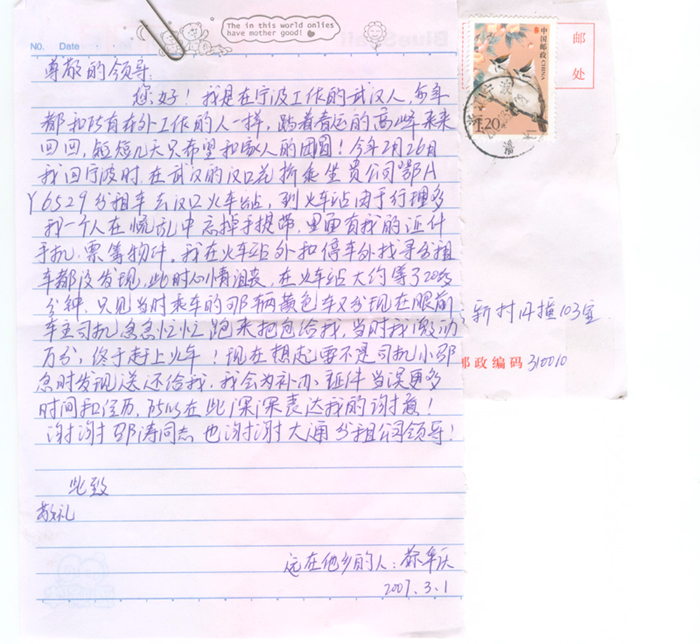 The in this world onlies
have mother good!
No. Date
尊敬的领导:
您好!我是在宁波工作的武汉人,每年
都和所有在外工作的人一样,踏着春运的高峰来来
回回,短短几天只希望和家人的团圆!今年2月26日
我回宁波时,在武汉的汉口花桥乘坐贵公司鄂A
Y6529出租车去汉口火车站,到火车站由于行理多
我一个人在慌乱中忘掉手提带,里面有我的证件
手机、票等物件。我在火车站外和停车外找寻出租
车都没发现,此时心情沮丧,在火车站大约等了20多
分钟,只见当时乘车的那辆颜色车又出现在眼前
车主司机急急忙忙跑来把包给我,当时我激动
万分,终于赶上火车!现在想起要不是司机小邵
急时发现送还给我,我会为补办证件当误更多
时间和经历,所以在此深深表达我的谢意!
谢谢邵涛同志也谢谢大通出租公司领导!
此致
敬礼
远在他乡的人:
2007.3.1
邮
处
中国邮政 CHINA
1.20
新村 103室
邮政编码 310010